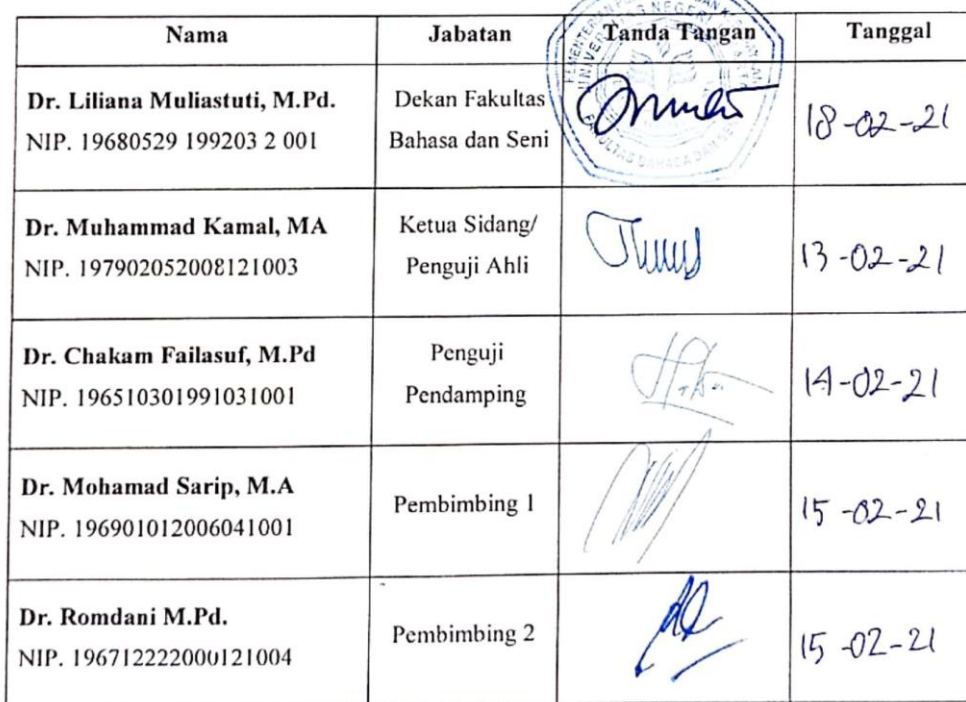 Nama Jabatan Tanda Tangan Tanggal
Dr. Liliana Muliastuti, M.Pd.
NIP. 19680529 199203 2 001
Dekan Fakultas
Bahasa dan Seni
18-02-21
Dr. Muhammad Kamal, MA
NIP. 197902052008121003
Ketua Sidang/
Penguji Ahli
13-02-21
Dr. Chakam Failasuf, M.Pd
NIP. 196510301991031001
Penguji
Pendamping
14-02-21
Dr. Mohamad Sarip, M.A
NIP. 196901012006041001
Pembimbing 1
15-02-21
Dr. Romdani M.Pd.
NIP. 196712222000121004
Pembimbing 2
15-02-21